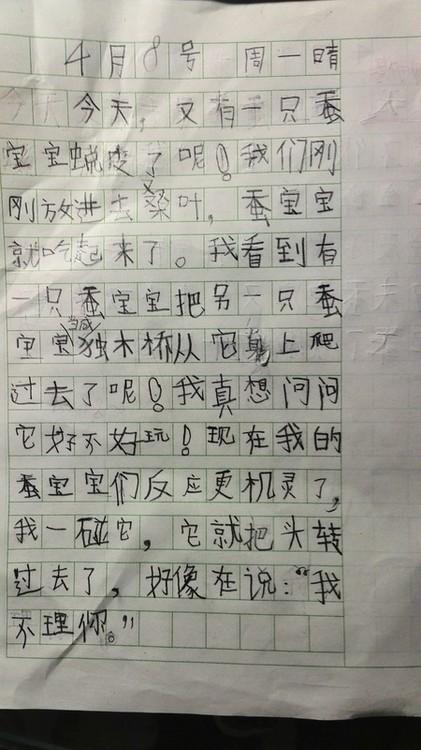 4月8号 周一晴
今天,又有一只蚕
宝宝蜕变了呢!我们刚
刚放进去桑叶,蚕宝宝
就吃起来了。我看到有
一只蚕宝宝把另一只蚕
宝宝当成独木桥从它身上爬
过去了呢!我真想问问
它好不好玩!现在我的
蚕宝宝们反应更机灵了,
我一碰它,它就把头转
过去了,好像在说:“我
不理你。”